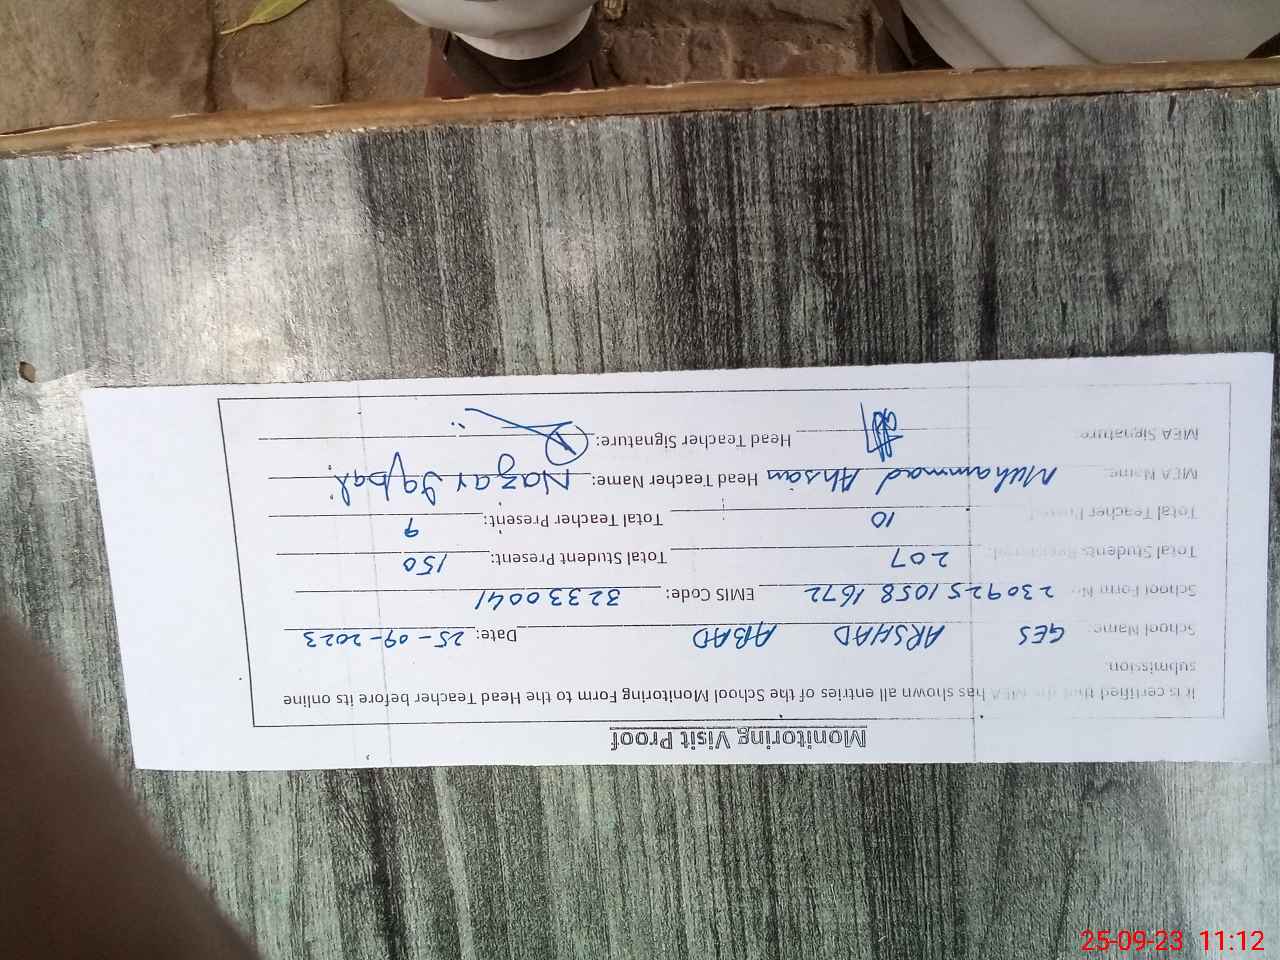 Monitoring Visit Proof
It is certified that the MEA has shown all entries of the School Monitoring Form to the Head Teacher before its online
submission.
School Name: GES ARSHAD ABAD Date: 25-09-2023
School Form No. 230925 1058 1672 EMIS Code: 32330041
Total Students Registered: 207 Total Student Present: 150
Total Teacher 10 Total Teacher Present: 9
MEA Name: Muhammad Ahsan Head Teacher Name: Nazar Iqbal
MEA Signature: Head Teacher Signature:
25-09-23 11:12